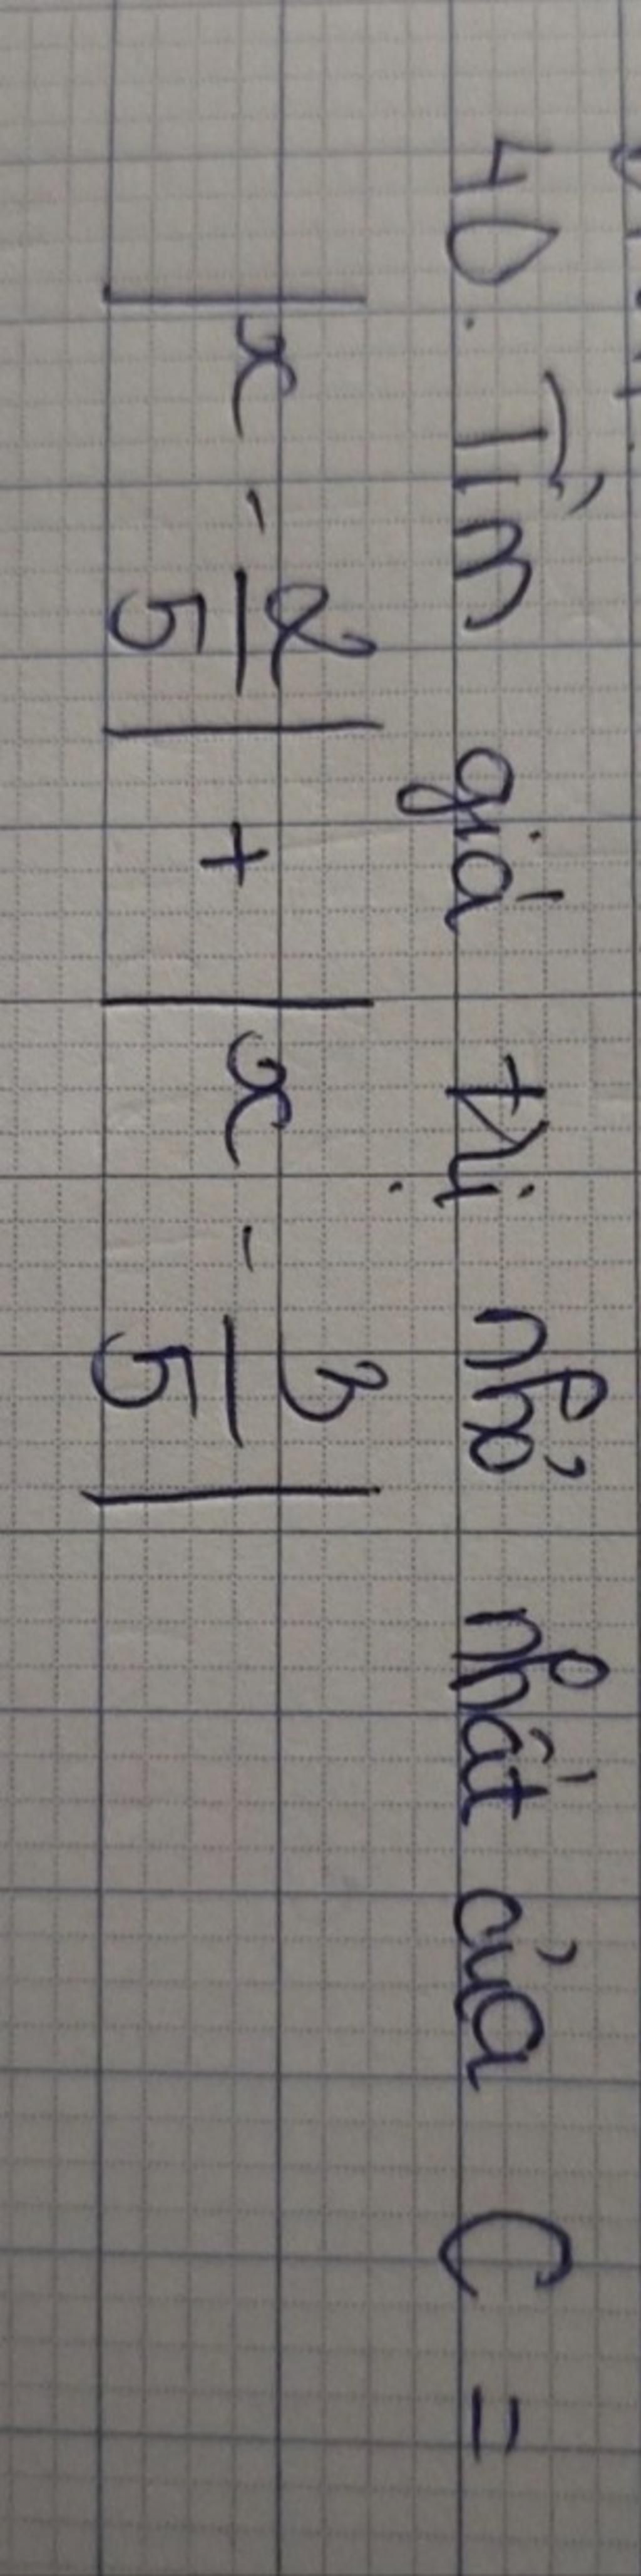 40. Tìm giá trị nhỏ nhất của C =
|x - 2/5| + |x - 3/5|